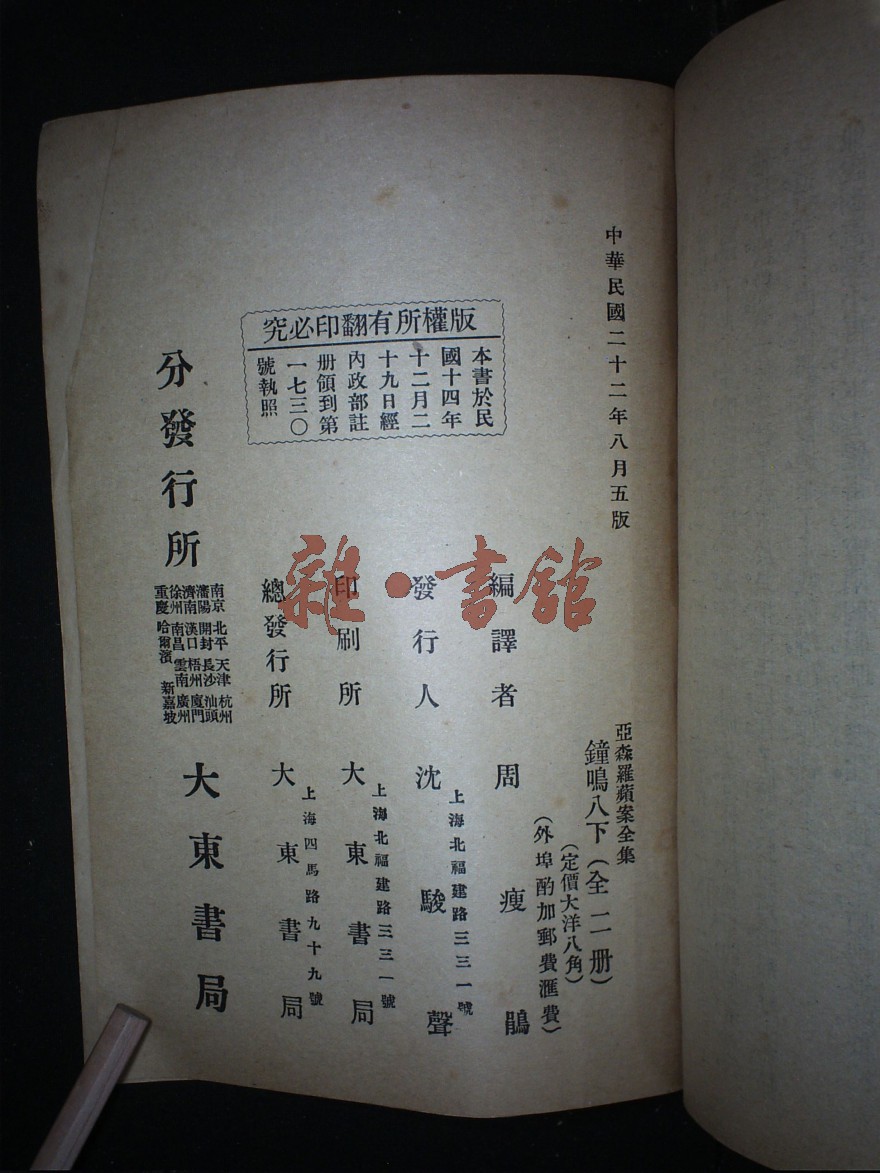 中華民國二十二年八月五版
亞森羅蘋案全集
鐘鳴八下（全二册）
（定價大洋八角）
（外埠酌加郵費匯費）
編譯者 周瘦鵑
發行人 沈駿聲
上海北福建路三三一號
印刷所 大東書局
上海北福建路三三一號
總發行所 大東書局
上海四馬路九十九號
分發行所 大東書局
南京 北平 天津 杭州
瀋陽 開封 長沙 汕頭
濟南 漢口 梧州 廈門
徐州 南昌 雲南 廣州
重慶 哈爾濱 新嘉坡
版權所有翻印必究
本書於民
國十四年
十二月二
十九日經
內政部註
册領到第
一七三〇
號執照
雜·書館